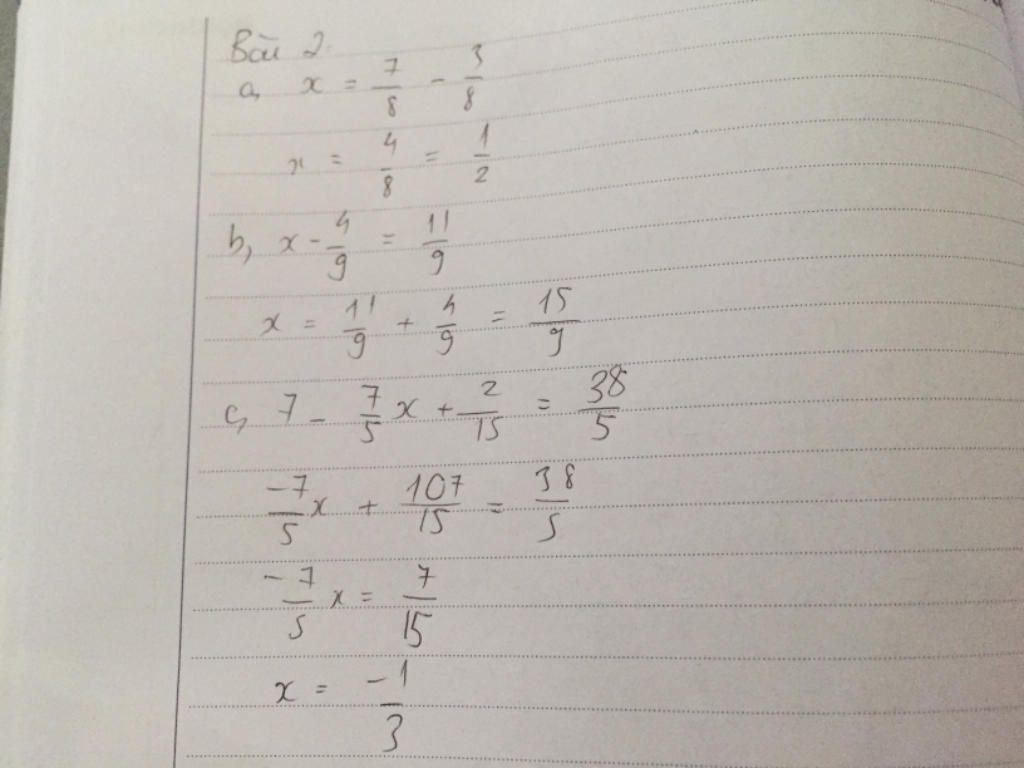 Bài 2.
a, x = 7/8 - 3/8
x = 4/8 = 1/2
b, x - 4/9 = 11/9
x = 11/9 + 4/9 = 15/9
c, 7 - 7/5 x + 2/15 = 38/5
-7/5 x + 107/15 = 38/5
-7/5 x = 7/15
x = -1/3